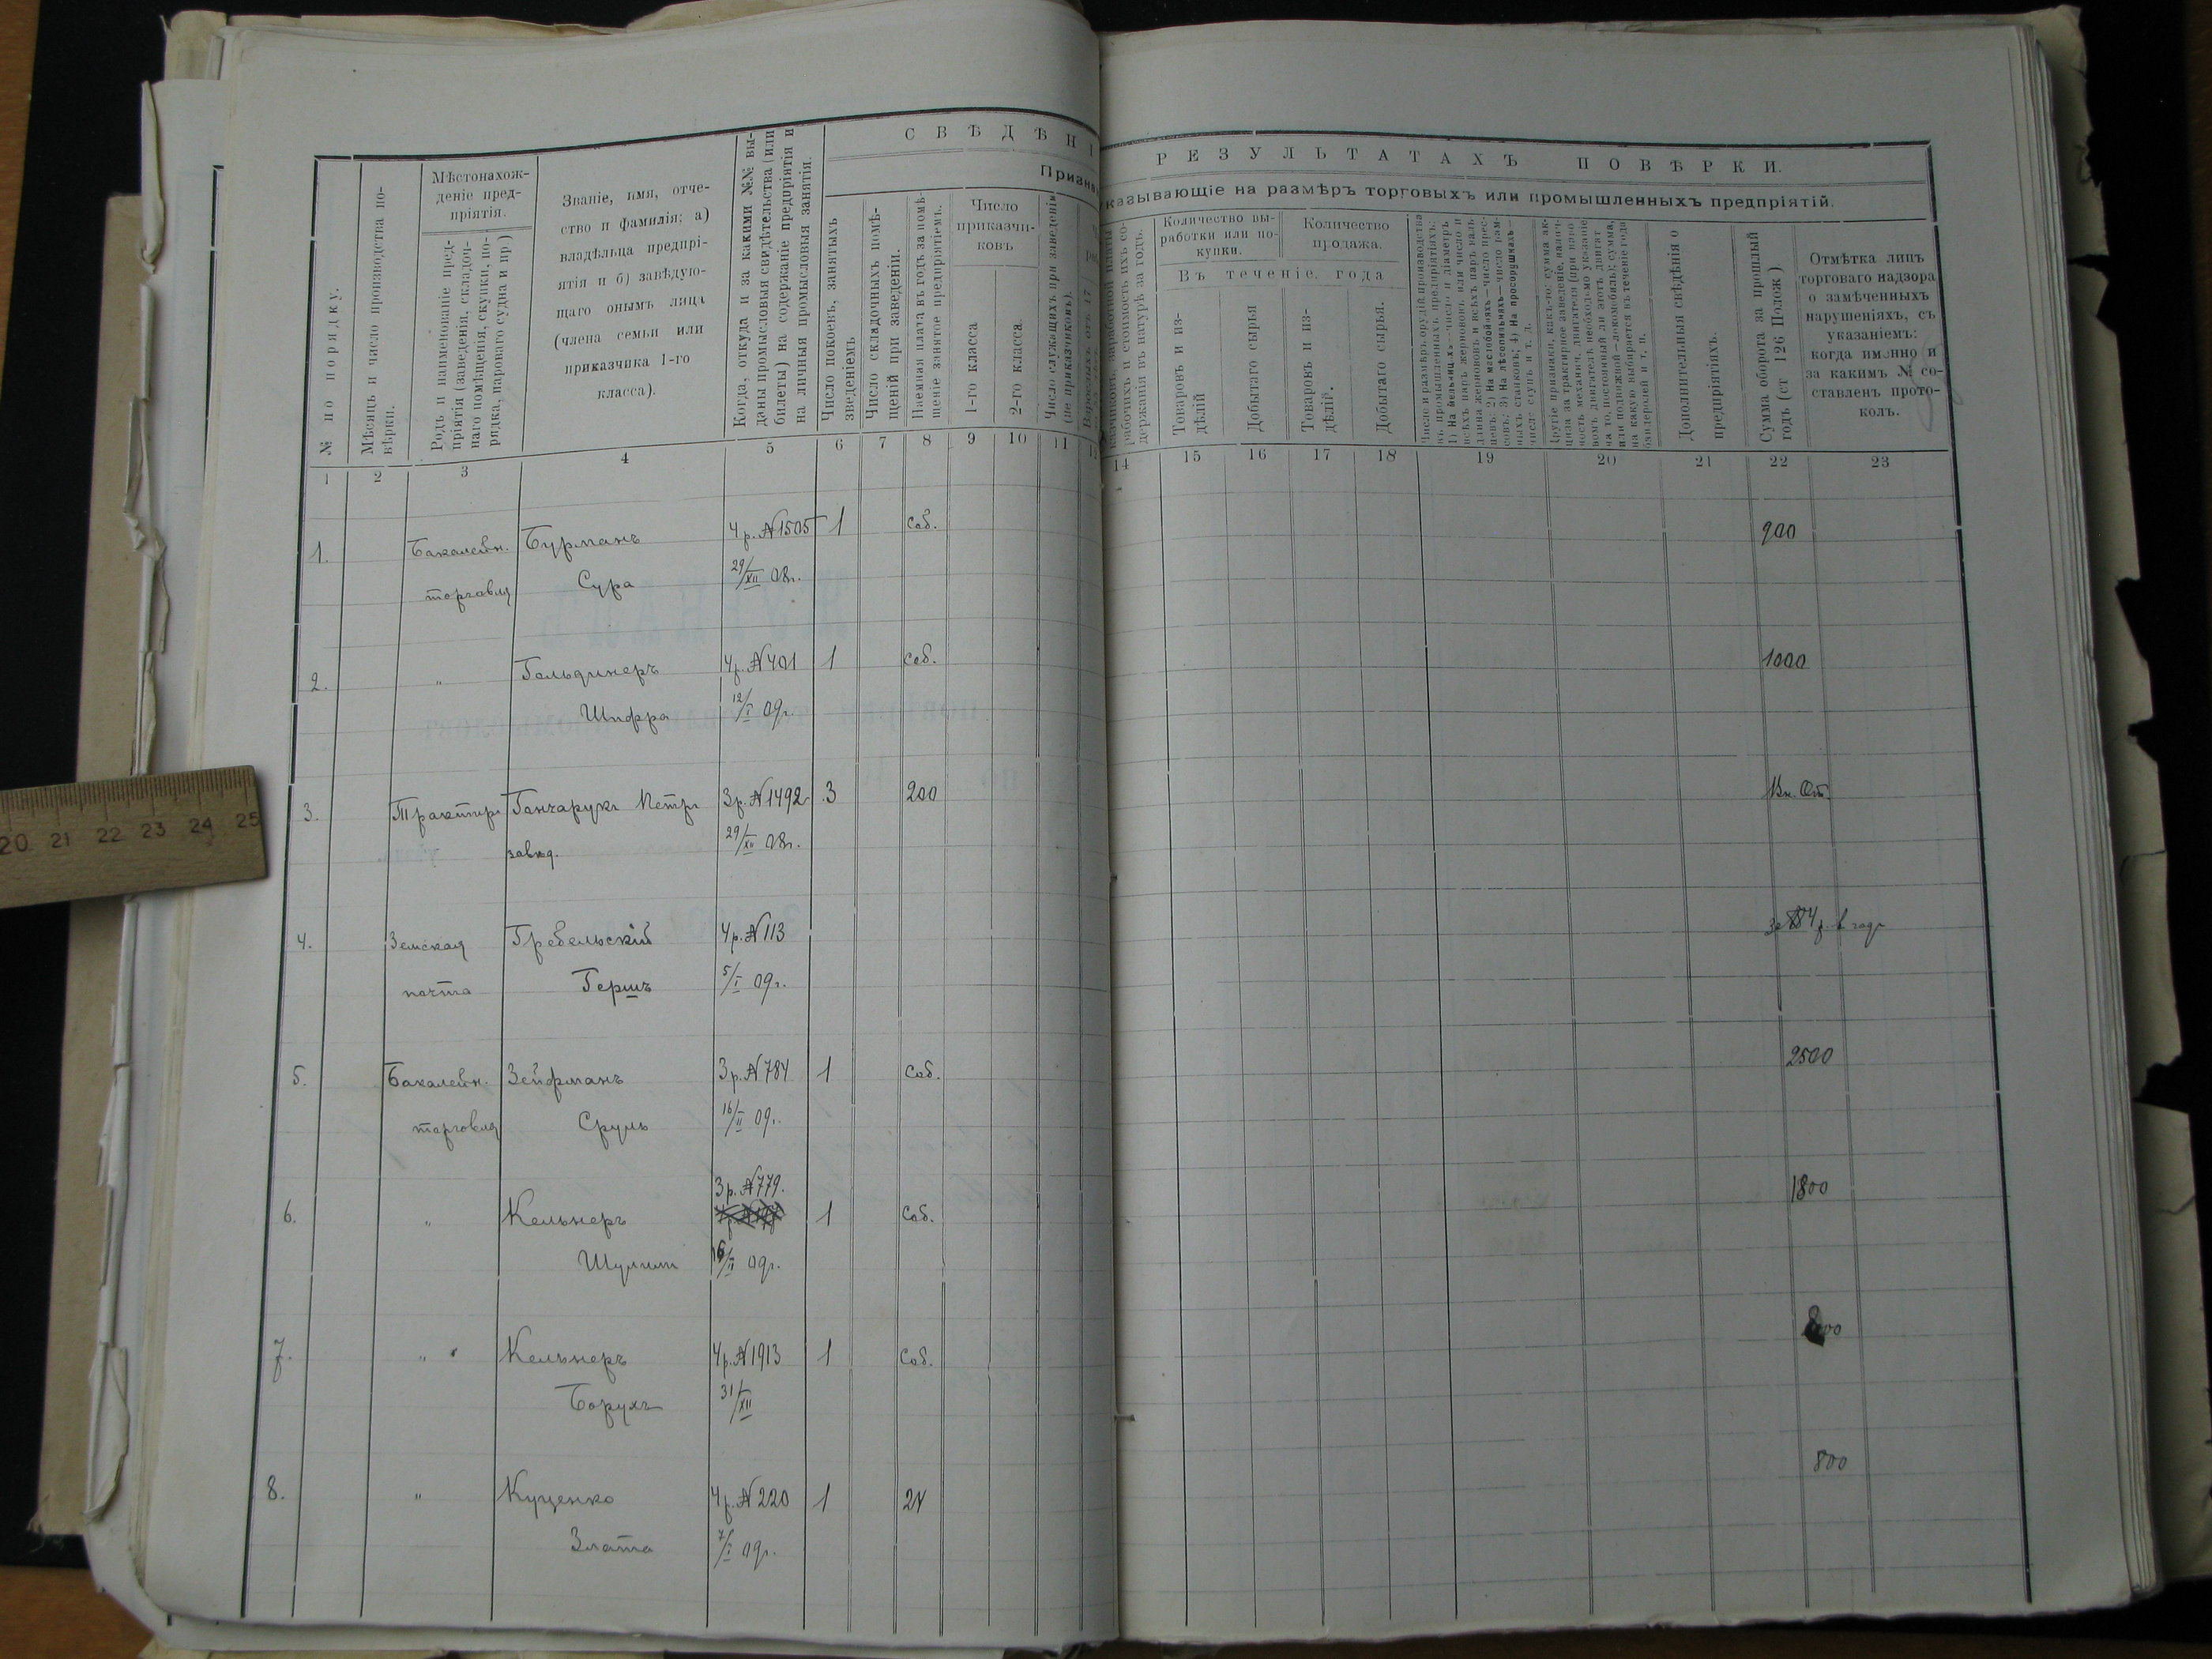 СВѢДѢНІ
РЕЗУЛЬТАТАХЪ ПОВѢРКИ.
Признак
казывающіе на размѣръ торговыхъ или промышленныхъ предпріятій.
№ по порядку.
Мѣсяцъ и число производства по-
вѣрки.
Мѣстонахож-
деніе пред-
пріятія.
Родъ и наименованіе пред-
пріятія (заведенія, складоч-
наго помѣщенія, скупки, по-
ряда, пароваго судна и пр.)
Званіе, имя, отче-
ство и фамилія: а)
владѣльца предпрі-
ятія и б) завѣдую-
щаго онымъ лица
(члена семьи или
приказчика 1-го
класса).
Когда, откуда и за какими №№ вы-
даны промысловыя свидѣтельства (или
билеты) на содержаніе предпріятія и
на личныя промысловыя занятія.
Число покоевъ, занятыхъ
зведеніемъ
Число складочныхъ помѣ-
щеній при заведеніи.
Наемная плата въ годъ за помѣ-
щеніе занятое предпріятіемъ.
Число
приказчи-
ковъ
1-го класса
2-го класса.
Число служащихъ при заведеніи
(не приказчиковъ).
рабочихъ и стоимость ихъ со-
держанія въ натурѣ за годъ.
Количество вы-
работки или по-
купки.
Количество
продажа.
Въ теченіе года
Товаровъ и из-
дѣлій
Добытаго сырья
Товаровъ и из-
дѣлій.
Добытаго сырья.
Число и размѣръ орудій производства
въ промышленныхъ предпріятіяхъ:
1) На мельницахъ—число и діаметръ
всѣхъ паръ жернововъ или число и
длина жернововъ и всѣхъ паръ валь
цевъ; 2) На маслобойняхъ—число прес-
совъ; 3) На лѣсопильняхъ—число рам-
ныхъ станковъ; 4) На просорушняхъ—
число ступъ и т. д.
Другіе признаки, какъ-то: сумма ак-
циза за трактирное заведеніе, налич-
ность механич. двигателя (при паро-
вомъ двигателѣ необходимо указаніе
на то, постоянный ли этотъ двигат
или подвижной—локомобиль); сумма,
на какую выбирается въ теченіе года
бандеролей и т. п.
Дополнительныя свѣдѣнія о
предпріятіяхъ.
Сумма оборота за прошлый
годъ (ст 126 Полож )
Отмѣтка лицъ
торговаго надзора
о замѣченныхъ
нарушеніяхъ, съ
указаніемъ:
когда именно и
за какимъ № со-
ставленъ прото-
колъ.
1 2 3 4 5 6 7 8 9 10 11 12
14 15 16 17 18 19 20 21 22 23
1. Бакалейн. Бурманъ 4 р. № 1505 1 Соб. 900
торговля Сура 29/XII 08г.
2. „ Гольдинеръ 4 р. № 401 1 Соб. 1000
Шифра 12/I 09г.
3. Трактирн Гончарукъ Петръ 3 р. № 1492 3 200 Вн. От.
завед. 29/XII 08г.
4. Земская Гребельскій 4 р. № 113 р. в годъ
почта Гершъ 5/I 09г.
5. Бакалейн. Зейфманъ 3 р. № 784 1 Соб. 2500
торговля Сруль 16/II 09г.
3 р. № 779.
6. „ Кельнеръ 1 Соб. 1800
Шулим 16/II 09г.
7. „ Кельнеръ 4 р. № 1913 1 Соб.
Борухъ 31/XII
8. „ Куценко 4 р. № 220 1 24 800
Злата 7/I 09г.
20 21 22 23 24 25